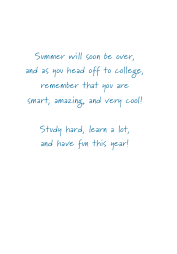 Summer will soon be over,
and as you head off to college,
remember that you are
smart, amazing, and very cool!
Study hard, learn a lot,
and have fun this year!